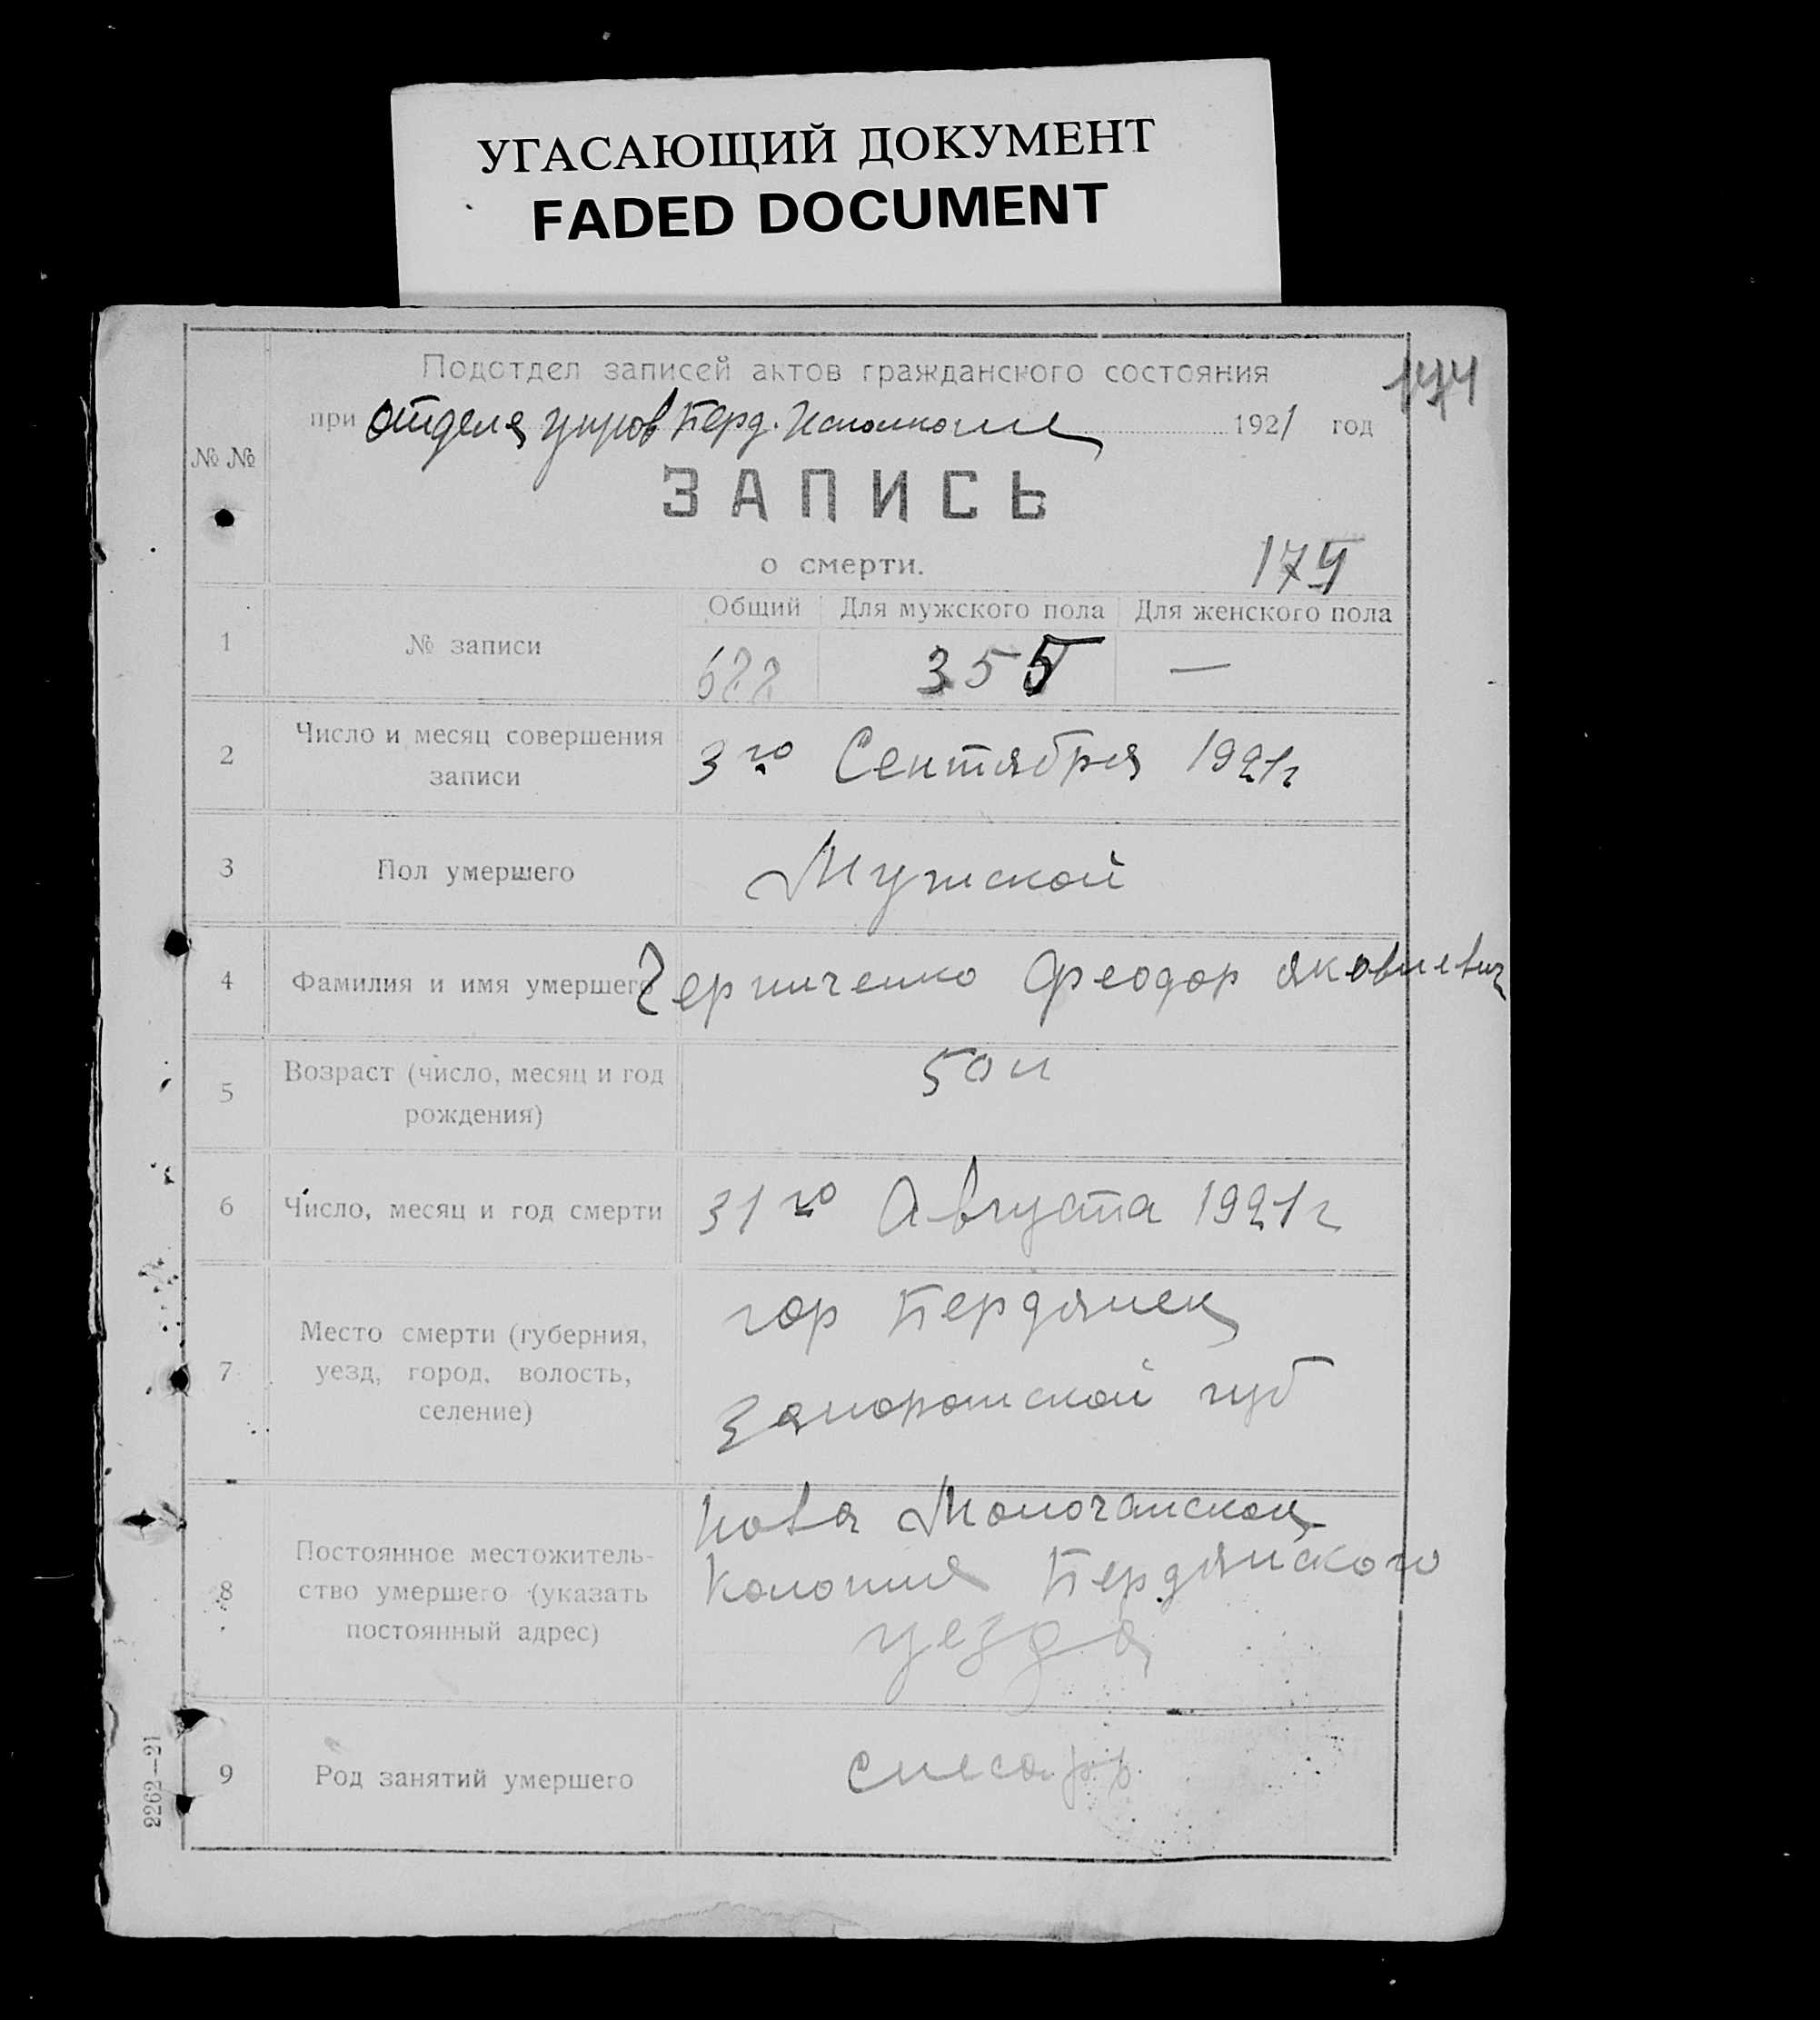 УГАСАЮЩИЙ ДОКУМЕНТ
FADED DOCUMENT
Подотдел записей актов гражданского состояния
при отдела управ Берд. Исполкома 1921 год
№ №
ЗАПИСЬ
о смерти.
Общий Для мужского пола Для женского пола
1 № записи 622 355 —
2 Число и месяц совершения
записи
3го Сентября 1921г
3 Пол умершего Мужской
4 Фамилия и имя умершего Черниченко Феодор Яковлевич
5 Возраст (число, месяц и год
рождения)
50 л
6 Число, месяц и год смерти 31го Августа 1921г
7 Место смерти (губерния,
уезд, город, волость,
селение)
гор Бердянск
Запорожской губ
8 Постоянное местожитель-
ство умершего (указать
постоянный адрес)
Нова Молочанской
Колония Бердянского
уезда
9 Род занятий умершего слесарь
2262—21